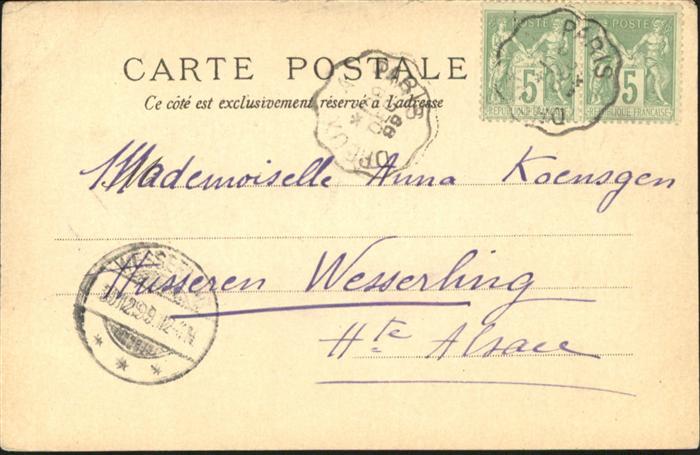 POSTE POSTE
5 5
RÉPUBLIQUE FRANÇAISE RÉPUBLIQUE FRANÇAISE
PARIS
CARTE POSTALE
Ce côté est exclusivement réservé à l'adresse
PARIS
99
DREUX A
Mademoiselle Anna Koensgen
Husseren Wesserling
Hte Alsace